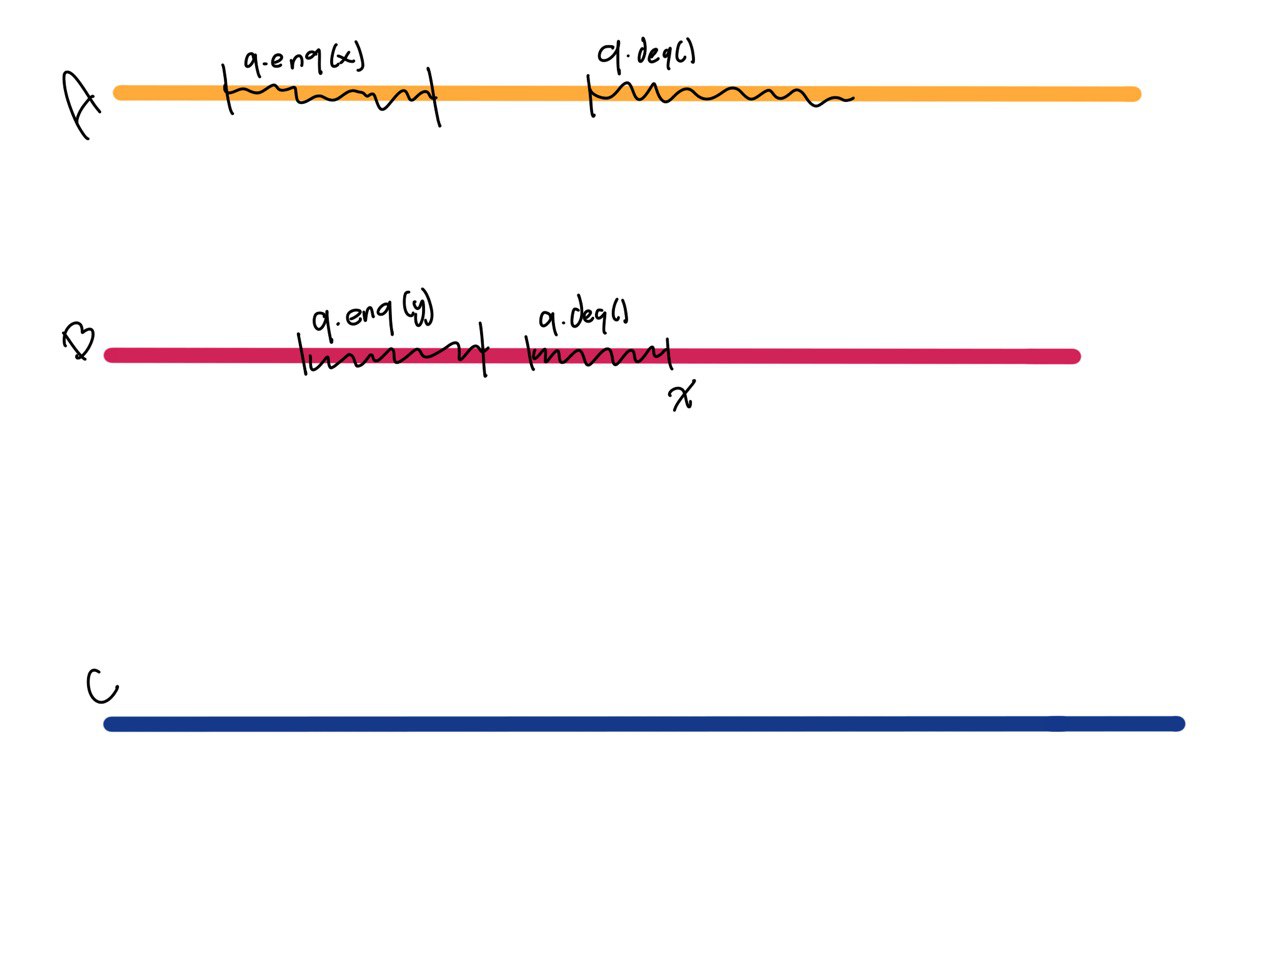 A
q.enq(x)
q.deq()
B
q.enq(y)
q.deq()
x
C